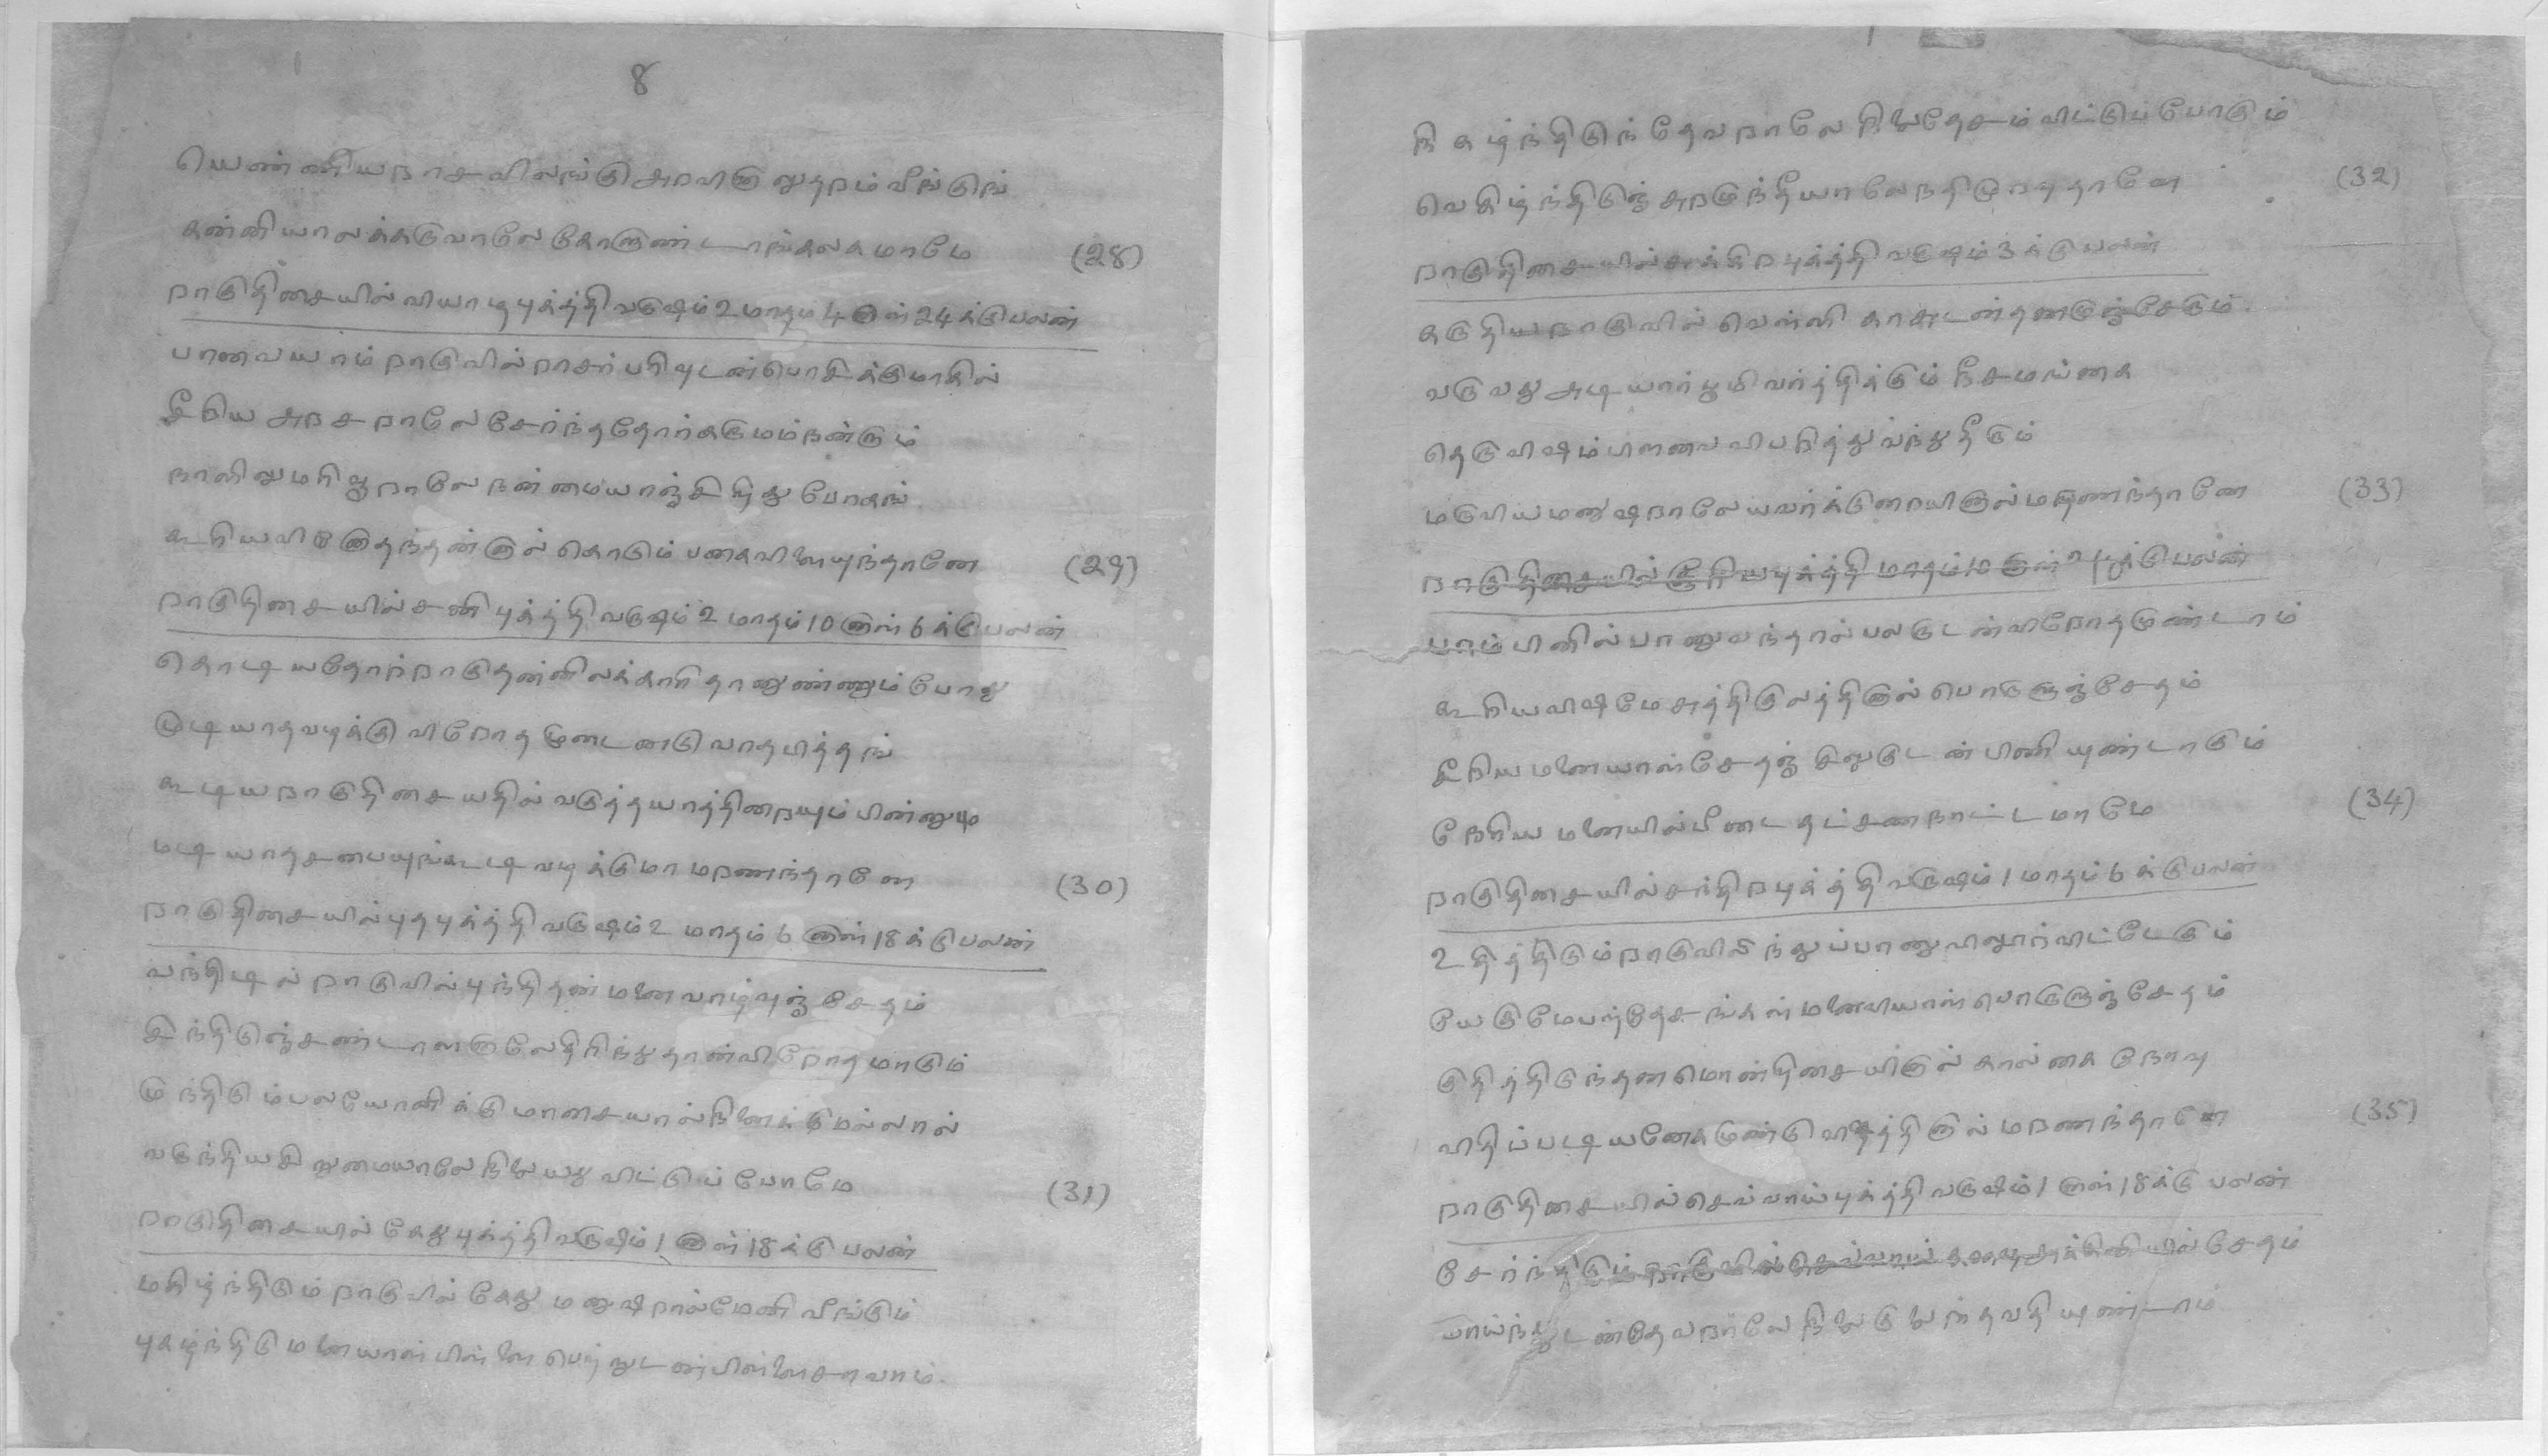 8
யெண்ணியநாசவிலங்கு அரவினாலுதரம் வீங்குங்
கன்னியாலக்கருவாலே கோளுண்டாங்கலகமாமே (28)
றாகுதிசையில் வியாழபுக்த்தி வருஷம் 2 மாதம் 4 னாள் 24 க்கு பலன்
பாவையாம் றாகுவில் றாசர் பரிவுடன் பொசிக்குமாகில்
சீறிய அரசராலே சேர்ந்ததோர் கருமம் நன்றும்
நாளிலுமரிவராலே நன்மையாஞ் சிறிது போகங்
கூறிய வி னாதந்தன்னால் கொடும் பகைவிளையுந்தானே (29)
றாகுதிசையில் சனிபுக்த்தி வருஷம் 2 மாதம் 10 னாள் 6 க்கு பலன்
கொடியதோற்றாகுதன்னிலக்காரிதானுண்ணும்போது
முடியாதவழக்கு விறோதமுடைனடுவாதபித்தங்
கூடியறாகுதிசையதில் வருத்தயாத்திறையும் பின்னும்
மடியாதசபையுங்கூடி வழக்குமா மறணந்தானே (30)
றாகுதிசையில் புதபுக்த்தி வருஷம் 2 மாதம் 6 னாள் 18 க்கு பலன்
வந்திடில் றாகுவில் புந்திதன் மனைவாழ்வுஞ்சேதம்
சிந்திடுஞ்சண்டாளனாலே திரிந்துதான் விறோதமாகும்
முந்திடும்பலயோனிக்குமாசையால் நினைக்குமல்லால்
வருந்தியசிறுமையாலே நிலையது விட்டுப்போமே (31)
றாகுதிசையில் கேதுபுக்த்தி வருஷம் 1 னாள் 18 க்கு பலன்
மகிழ்ந்திடும் றாகுவில் கேது மனுஷறால்மேனி வீங்கும்
புகழ்ந்திடு மனையாள் பிள்ளை பெற்றுடன்பிள்ளைசாவாம்.
நிகழ்ந்திடுந் தேவறாலே நிலைதேசம் விட்டுப்போகும்
வெகிழ்ந்திடுஞ் சுறமுந்தீயாலே நதிமுறவுதானே (32)
றாகுதிசையில் சுக்கிறபுக்த்தி வருஷம் 3 க்கு பலன்
கருதியறாகுவில் வெள்ளி காசுடன்தனமுஞ்சேரும்.
வருவது அடியார் பூமிவர்த்திக்கும் நீசமங்கை
தெருவிஷம்பிளவை விபரித்து வந்து தீரும்
மருவியமனுஷறாலே யவர்க்குறையினால் மறணந்தானே (33)
றாகுதிசையில் சூரியபுக்த்தி மாதம் 10 னாள் க்கு பலன்
பாம்பினில் பானுவந்தால் பலருடன்விறோதமுண்டாம்
கூறியவிஷமே சுத்திகுலத்தினால் பொருளுஞ்சேதம்
சீறியமனையாள்சேதஞ் சிலுகுடன் பிணியுண்டாகும்
நேரிய மனையில்பீடை தட்சணநாட்டமாமே (34)
றாகுதிசையில் சந்திறபுக்த்தி வருஷம் 1 மாதம் 6 க்கு பலன்
உதித்திடும்றாகுவிலிந்துப்பானுவிலூர்விட்டேகும்
யேகுமேபற்தேசங்கள் மனைவியாள் பொருளுஞ்சேதம்
குதித்திடுந்தனமொன்திசையினால் கால்கை நோவு
விதிப்படியனேகமுண்டு விஷத்தினால் மறணந்தானே (35)
றாகுதிசையில் செவ்வாய்புக்த்தி வருஷம் 1 னாள் 18 க்கு பலன்
சேர்ந்திடும் றாகுவில் செவ்வாய் களவு அக்கினியில் சேதம்
பாய்ந்துடன்தேவறாலே நிலைகுலைந்தவதியுண்டாம்